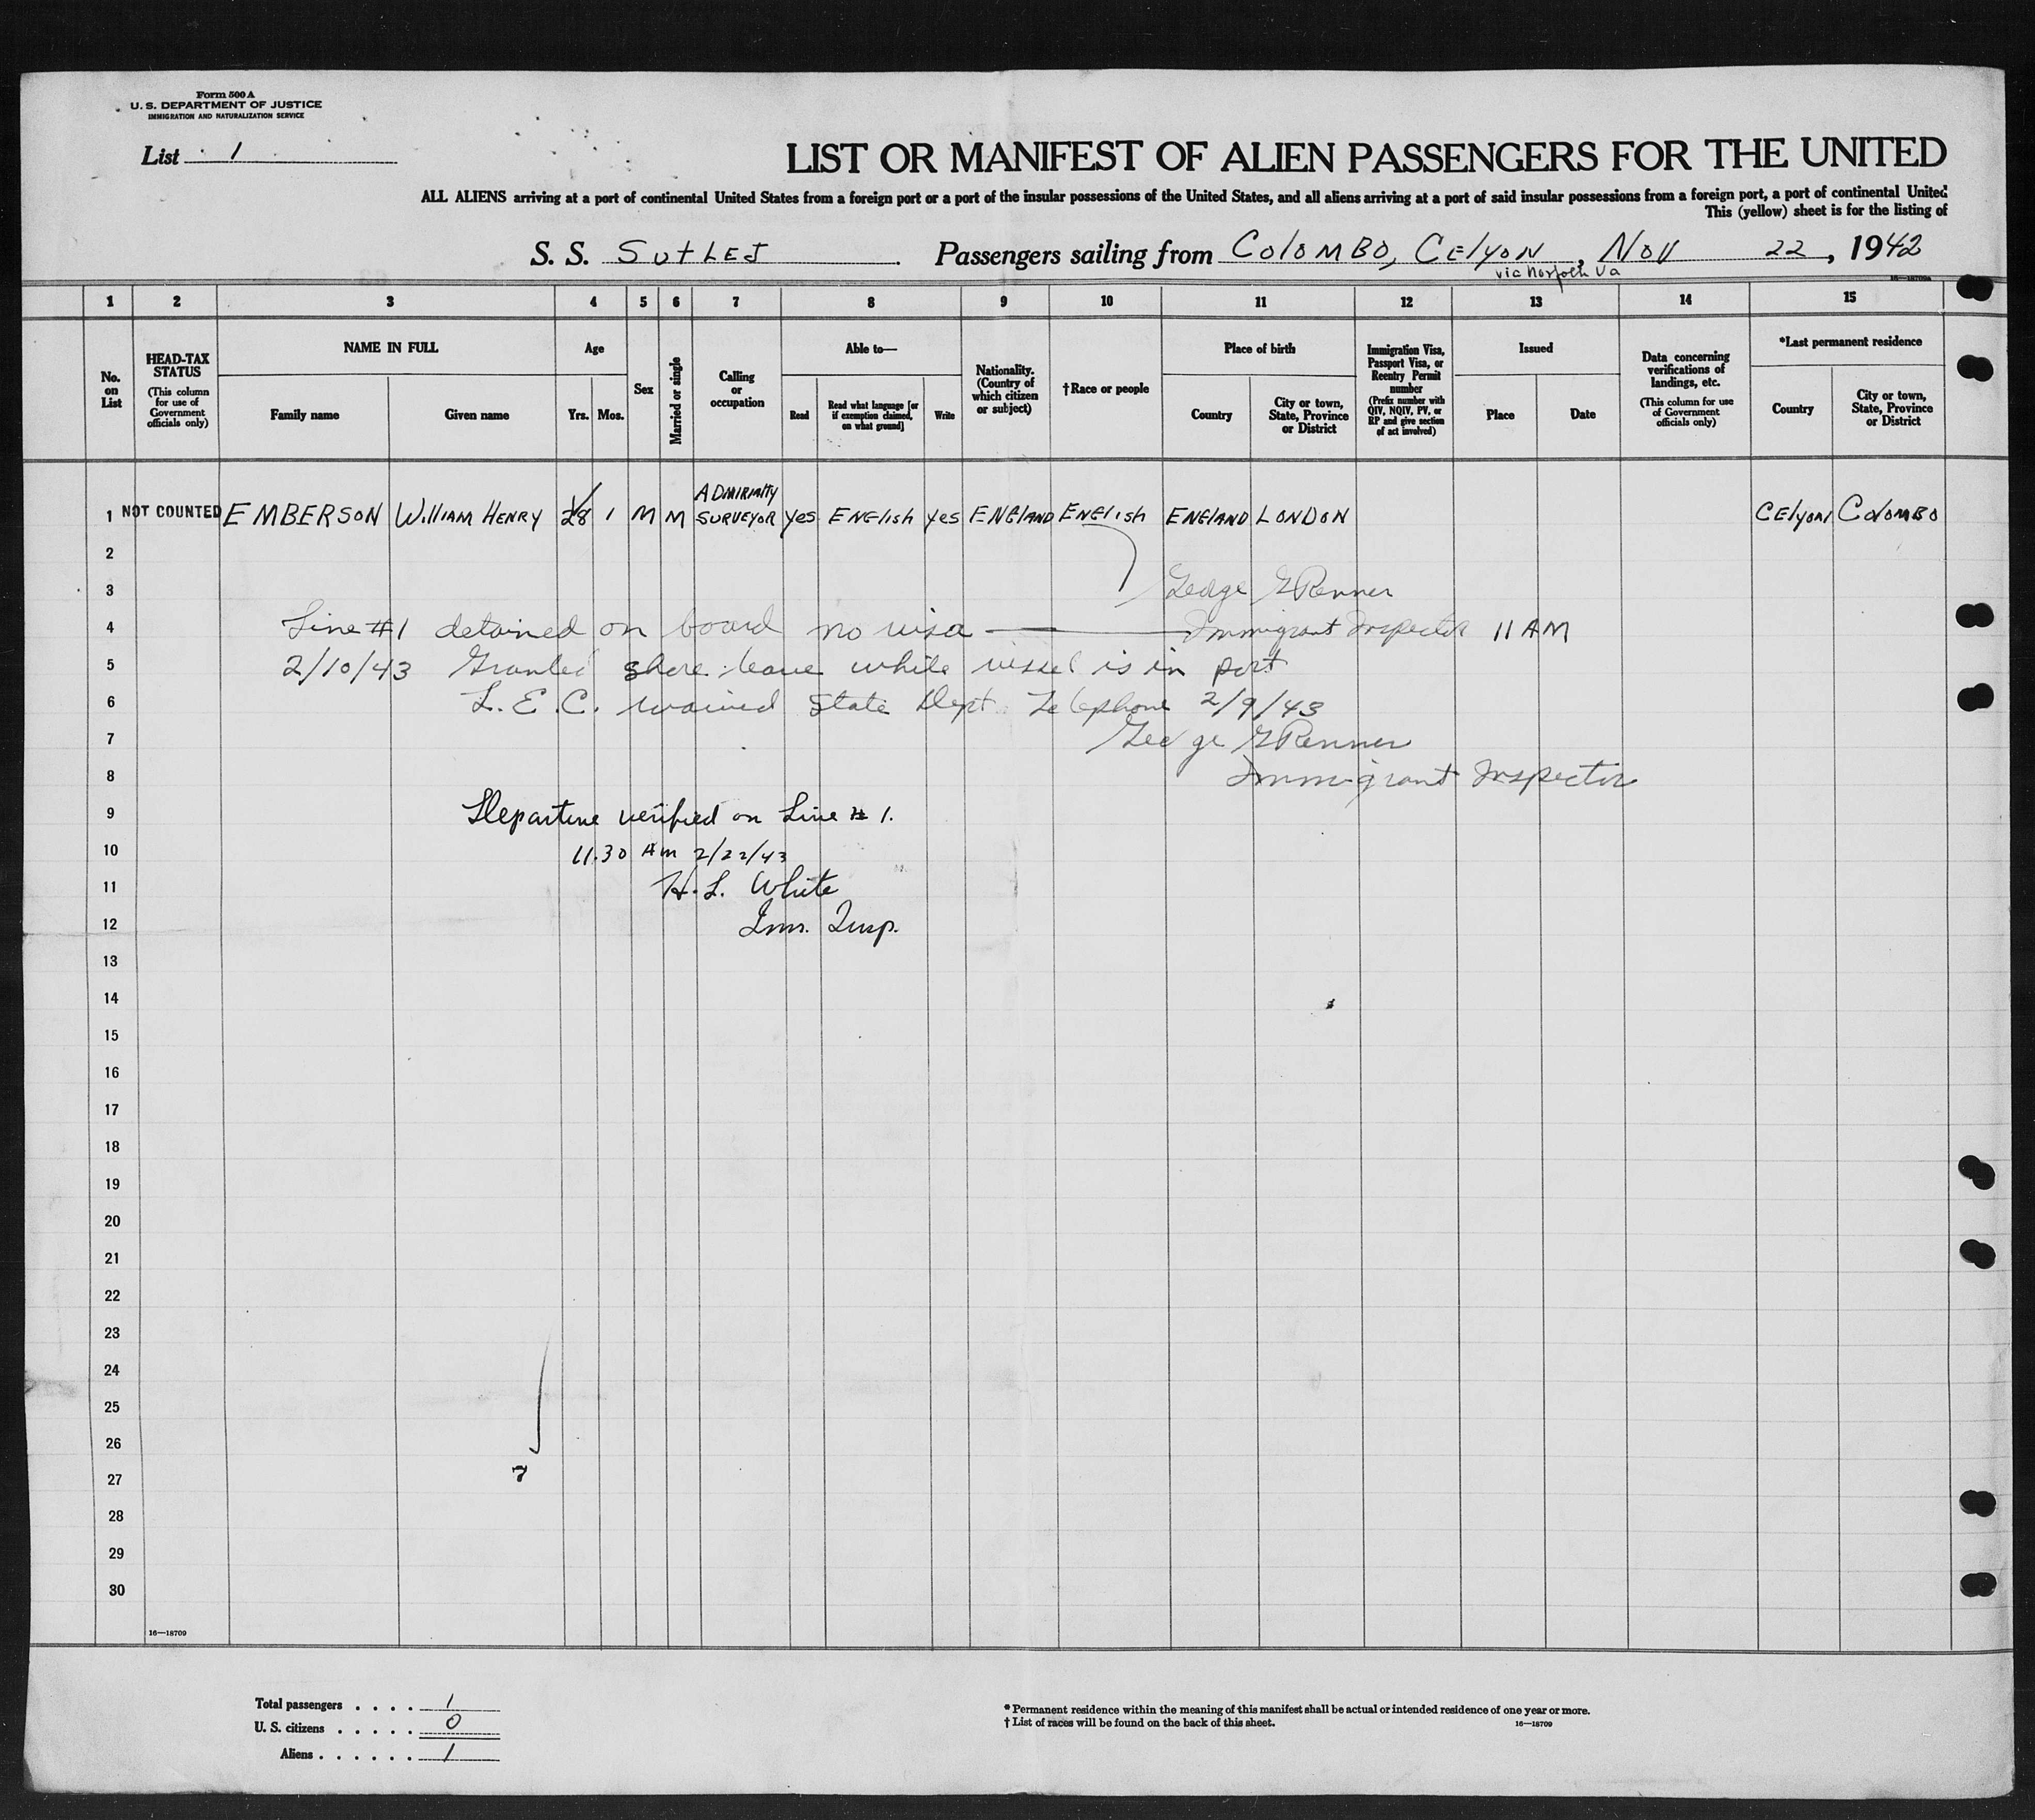 Form 500 A
U. S. DEPARTMENT OF JUSTICE
IMMIGRATION AND NATURALIZATION SERVICE
List 1
LIST OR MANIFEST OF ALIEN PASSENGERS FOR THE UNITED
ALL ALIENS arriving at a port of continental United States from a foreign port or a port of the insular possessions of the United States, and all aliens arriving at a port of said insular possessions from a foreign port, a port of continental United
This (yellow) sheet is for the listing of
S. S. SutLEJ. Passengers sailing from ColoMBO, CElyoN, Nov 22, 1942
via Norfolk Va
16—18709a
1 2 3 4 5 6 7 8 9 10 11 12 13 14 15
No. on List
HEAD-TAX STATUS
(This column for use of Government officials only)
NAME IN FULL
Family name
Given name
Age
Yrs.
Mos.
Sex
Married or single
Calling or occupation
Able to—
Read
Read what language [or if exemption claimed, on what ground]
Write
Nationality. (Country of which citizen or subject)
†Race or people
Place of birth
Country
City or town, State, Province or District
Immigration Visa, Passport Visa, or Reentry Permit number
(Prefix number with QIV, NQIV, PV, or RP and give section of act involved)
Issued
Place
Date
Data concerning verifications of landings, etc.
(This column for use of Government officials only)
*Last permanent residence
Country
City or town, State, Province or District
1 NOT COUNTED EMBERSON WilliAM HENRY 28 1 M M ADMIRIAlty SURVEyoR yes ENGlish yes ENGlAND ENGlish ENGlAND LONDON CElyoN ColoMBO
2
3 George G Renner
4 Line #1 detained on board no visa — Immigrant Inspector 11 AM
5 2/10/43 Granted shore leave while vessel is in port
6 L. E. C. waived State Dept Telephone 2/9/43
7 George G Renner
8 Immigrant Inspector
9 Departure verified on Line # 1.
10 11.30 Am 2/22/43
11 H. L. White
12 Imm. Insp.
13
14
15
16
17
18
19
20
21
22
23
24
25
26
27 7
28
29
30
16—18709
Total passengers . . . . 1
U. S. citizens . . . . . 0
Aliens . . . . . . 1
* Permanent residence within the meaning of this manifest shall be actual or intended residence of one year or more.
† List of races will be found on the back of this sheet.
16—18709